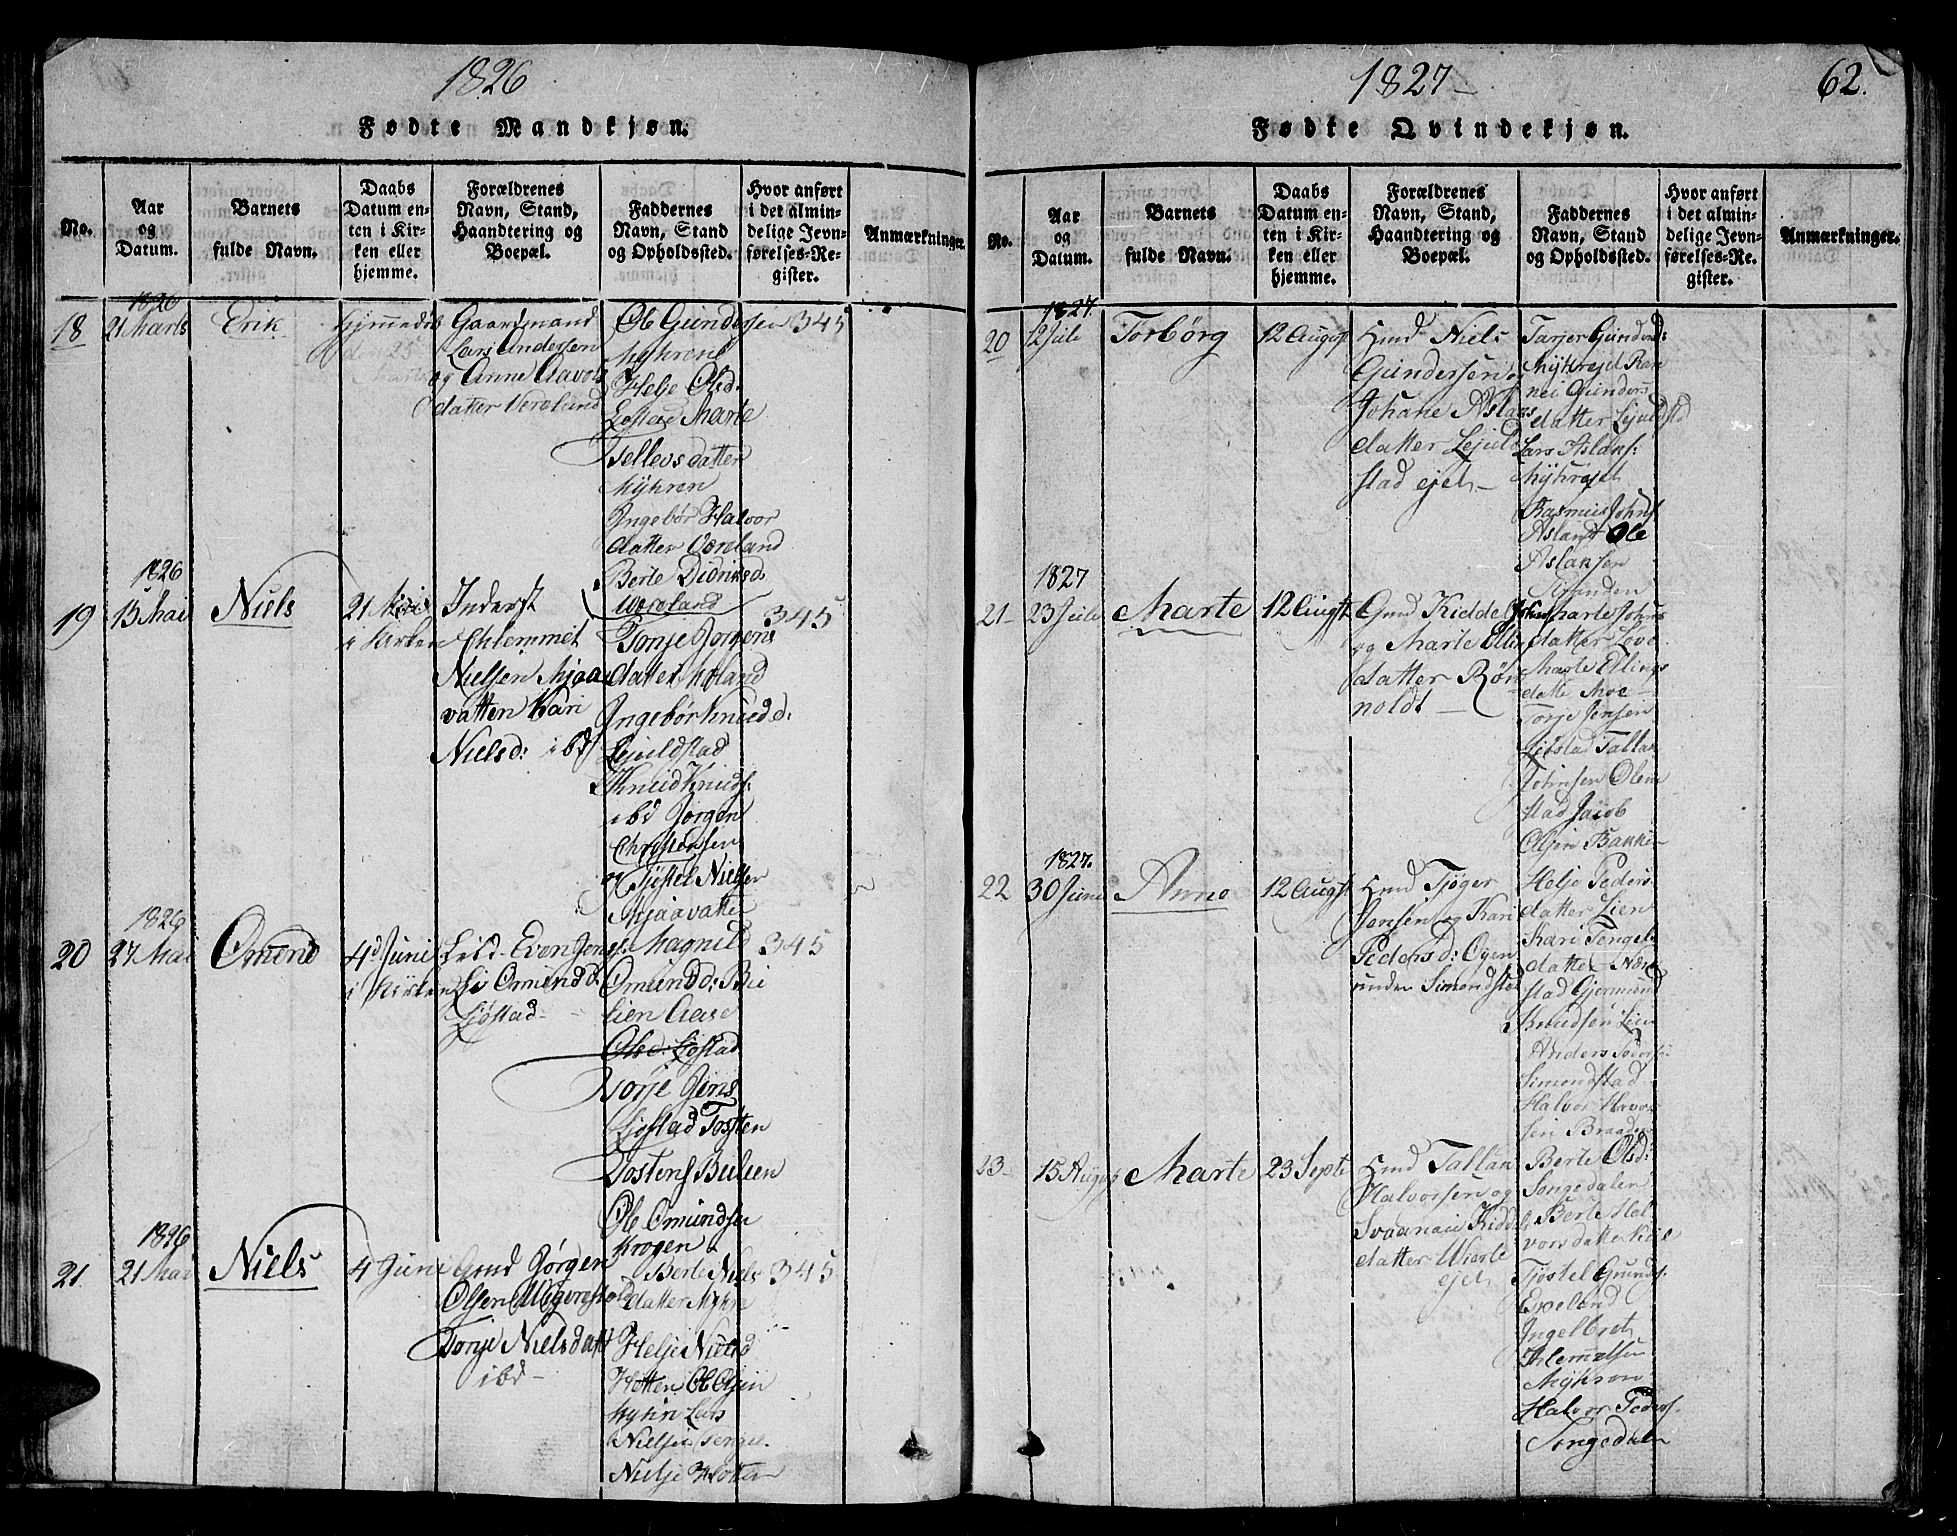 1826
Fødte Mandkjøn.
No.
Aar
og
Datum.
Barnets
fulde Navn.
Daabs
Datum en-
ten i Kir-
ken eller
hjemme.
Forældrenes
Navn, Stand,
Haandtering og
Boepæl.
Faddernes
Navn, Stand
og Opholdssted.
Hvor anført
i det almin-
delige Jevn-
førelses-Re-
gister.
Anmærkninger.
18
1826
21 Marts
Erik
Hjemedøb
den 25
Gaardmand
Lars Andersen
og Anne Aavols
datter Væreland
Ole Gundersen
Myhrene
Helje Olsd.
Marte
Tellevsdatter
Myhren
Ingebør Halvor
datter Væreland
Berte Didriksd.
Wæreland
345
19
1826
15 Mai
Niels
21 Mai
i Kirken
Inderst
Chlemmet
Nielsen Mjaa
vatten Kari
Nielsd: ibd
Tonje Jørgens
datter Moland
Ingebør Knudd:
Lejuldstad
Knud Knuds:
ibd Jørgen
Christensen
Tjøstel Nielsen
Mjaavatten
345
20
1826
27 Mai
Omund
4d Juni
i Kirken
Leil. Even Jens:
Li Omundd.
Ljøstad
Magnild
Omundd: Bie
lien Aase
Olsd: Ljøstad
Torje Jens
Ljøstad Tosten
Tostens Buleen
Ole Omundsen
Krogen
345
21.
1826
21 Mai
Niels
4 Juni
Gmd Jørgen
Olsen
Tonje Nielsdatt
ibd
Berte Niels
datter Myhre
Helje Nielsd
Hotten Ole Olsen
Myhren Lars
Nielsen
Nielsje Hotten
345
1827
62.
Fødte Qvindekjøn.
No.
Aar
og
Datum.
Barnets
fulde Navn.
Daabs
Datum en-
ten i Kir-
ken eller
hjemme.
Forældrenes
Navn, Stand,
Haandtering og
Boepæl.
Faddernes
Navn, Stand
og Opholdssted.
Hvor anført
i det almin-
delige Jevn-
førelses-Re-
gister.
Anmærkninger.
20
1827.
12 Juli
Torbørg
12 August
Gmd Niels
Gundersen og
Johane Aslaks
datter Lejuld
stad ejet
Tarjer Gundend:
Myhrejet Ran
nei Gunders
datter Lejuldstd
Lars Aslaks:
Myhrejet
Rasmus Johns
Ole
Aslaksen
Grunden
21
1827
23 Juli
Marte
12 Augst
Gmd Kidde John
og Marte Elling
datter Røn
noldt
Marte Johns
datter Løvo
Marte Ellings
datte Moe
Torje Jensen
Ljøstad Tallak
Johnsen Olem
stad Jacob
Olsen Bakken
22
1827.
30 Juni
Anne
12 Augst
Gmd Tjøger
Jensen og Kari
Pedersd: Ogen
under Simonstad
Helje Peders
datter Lien
Kari Tengels
datter Næve
stad Gjermund
Knudsen Lien
Anders Peders:
Simondstad
Halvor Havor
sen Braaden
23
15 Augu
Marte
23 Septe
Gmd Tallak
Halvorsen og
Svaanau Kidd
datter Wierle
ejet
Berte Olsd:
Songedalen
Berte Hal
vorsdatter Kile
Tjøstel Gunds:
Exeland
Ingelbret
Klemmetsen
Myhren
Halvor Peders:
Songedalen